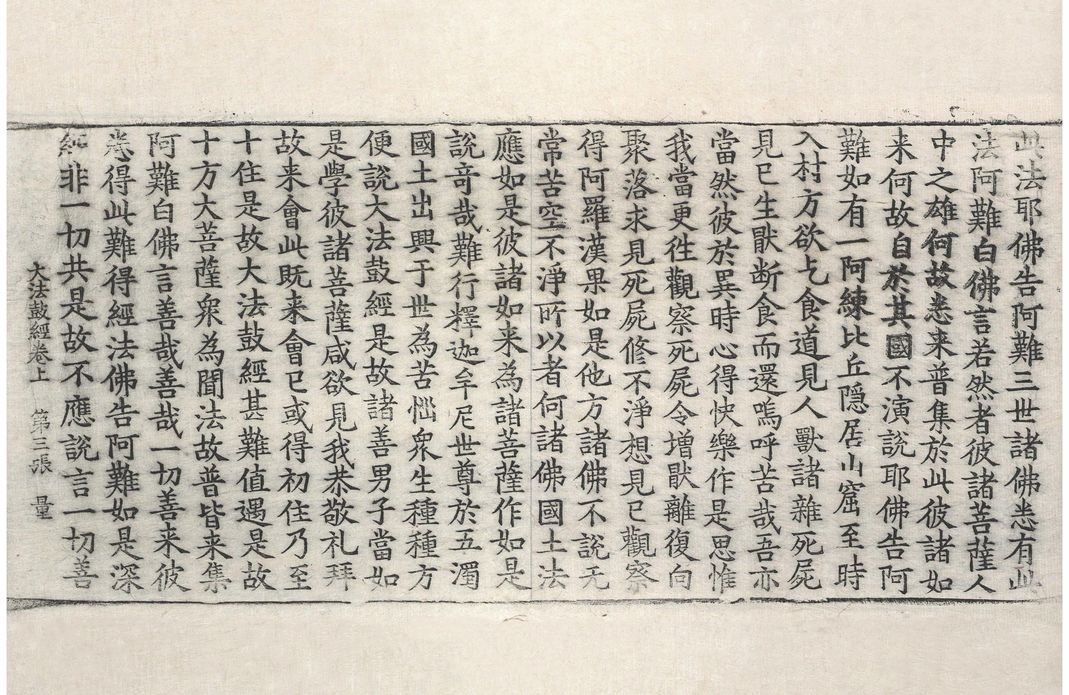 此法耶佛告阿難三世諸佛悉有此
法阿難白佛言若然者彼諸菩薩人
中之雄何故悉来普集於此彼諸如
来何故自於其國不演說耶佛告阿
難如有一阿練比丘隱居山窟至時
入村方欲乞食道見人獸諸雜死屍
見已生猒断食而還嗚呼苦哉吾亦
當然彼於異時心得快樂作是思惟
我當更徃觀察死屍令增猒離復向
聚落求見死屍修不淨想見已觀察
得阿羅漢果如是他方諸佛不說无
常苦空不淨所以者何諸佛國土法
應如是彼諸如来為諸菩薩作如是
說奇哉難行釋迦牟尼世尊於五濁
國土出興于世為苦惱衆生種種方
便說大法鼓經是故諸善男子當如
是學彼諸菩薩咸欲見我恭敬礼拜
故来會此既来會已或得初住乃至
十住是故大法鼓經甚難值遇是故
十方大菩薩衆為聞法故普皆来集
阿難白佛言善哉善哉一切善来彼
悉得此難得經法佛告阿難如是深
經非一切共是故不應說言一切善
大法鼓經卷上 第三張 量